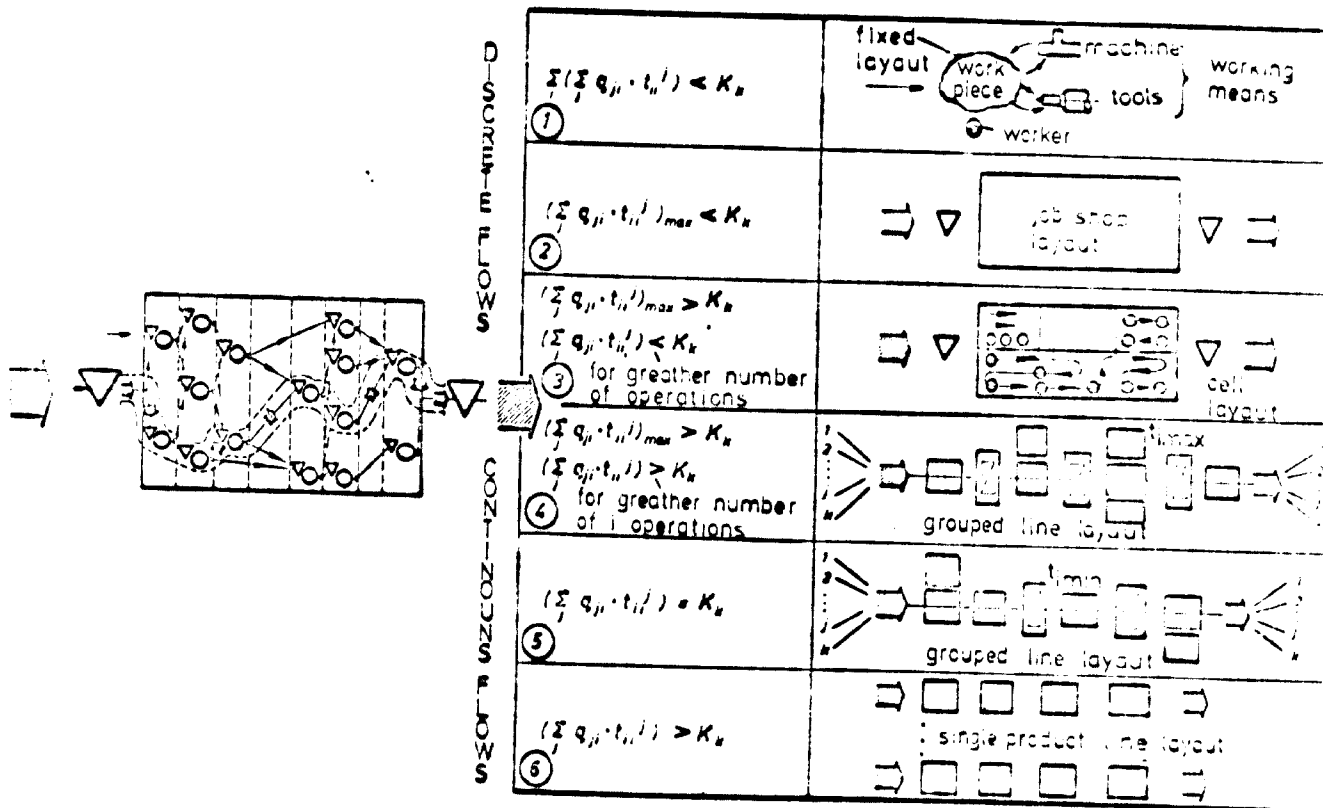 DISCRETE FLOWS
CONTINOUNS FLOWS
Σ(Σ q_ji · t_ii^j) < K_k
j
1
fixed
layaut
work
piece
machine
tools
working
means
worker
(Σ q_ji · t_ii^j)max < K_k
j
2
job shop
layaut
(Σ q_ji · t_ii^j)max > K_k
j
(Σ q_ji · t_ii^j) < K_k
j
for greather number
3
of operations
cell
layout
(Σ q_ji · t_ii^j)max > K_k
j
(Σ q_ji · t_ii^j) > K_k
j
for greather number
4
of i operations
1
2
j
k
timax
grouped line layaut
(Σ q_ji · t_ii^j) = K_k
j
5
1
2
j
k
timin
grouped line layaut
(Σ q_ji · t_ii^j) > K_k
j
6
single product line layaut